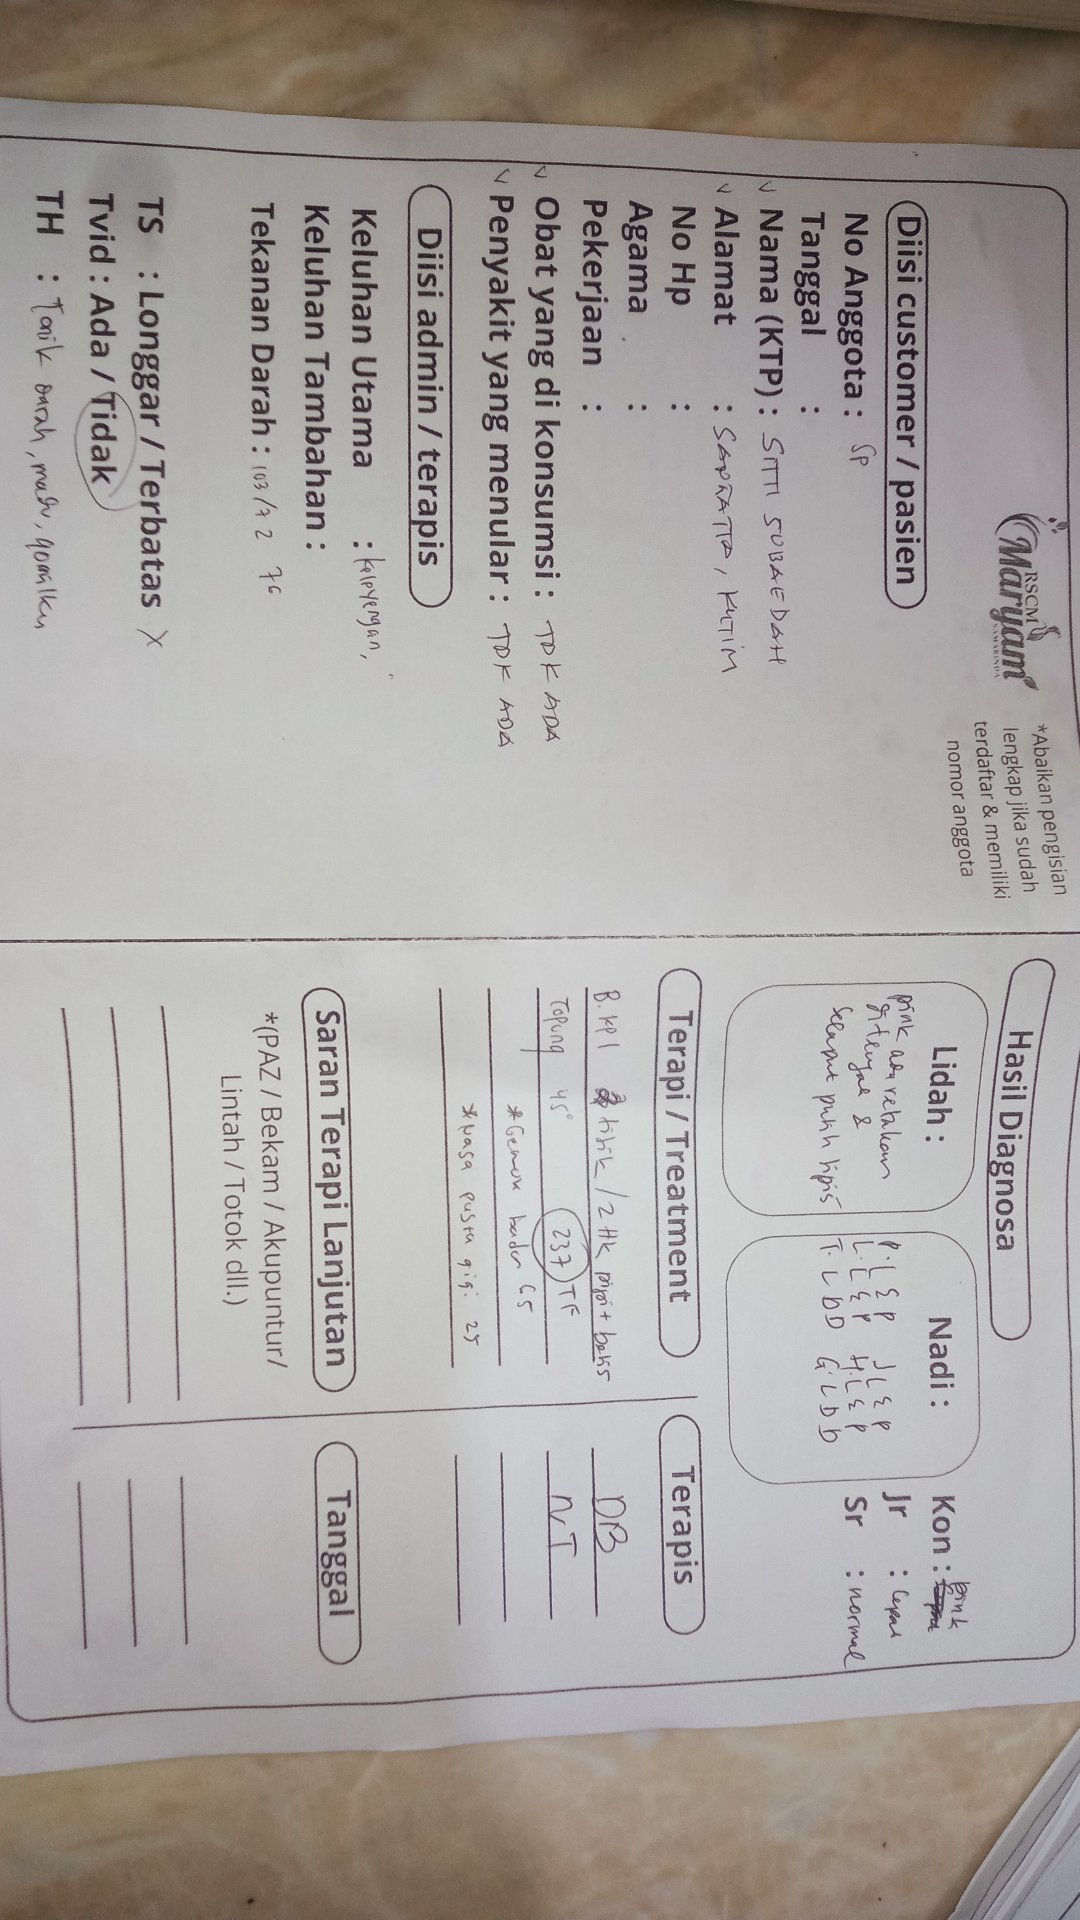 RSCM
Maryam
SAMARINDA
*Abaikan pengisian
lengkap jika sudah
terdaftar & memiliki
nomor anggota
Diisi customer / pasien
No Anggota : SP
Tanggal :
v Nama (KTP) : SITTI SUBAEDAH
v Alamat : SANGATTA, KUTIM
No Hp :
Agama :
Pekerjaan :
v Obat yang di konsumsi : TDK ADA
v Penyakit yang menular : TDK ADA
Diisi admin / terapis
Keluhan Utama :
Keluhan Tambahan :
Tekanan Darah : 103/72 76
TS : Longgar / Terbatas X
Tvid : Ada / Tidak
TH : Tonik darah, madu,
Hasil Diagnosa
Lidah :
pink ada retakan
ditengah &
selaput putih tipis
Nadi :
P. L S P J L S P
L. L S P H. L S P
T. L D D G. L D D
Kon : pink
Jr : cepat
Sr : normal
Terapi / Treatment
B. KPI titik / 2 Hk pipi + bekis
Topung 45° 237 TF
* badan 65
* pasta gigi 25
Terapis
DB
NT
Saran Terapi Lanjutan
*(PAZ / Bekam / Akupuntur/
Lintah / Totok dll.)
Tanggal